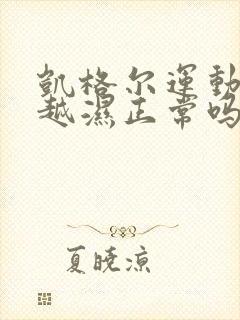 凱格尔運動
越濕正常吗
夏曉凉